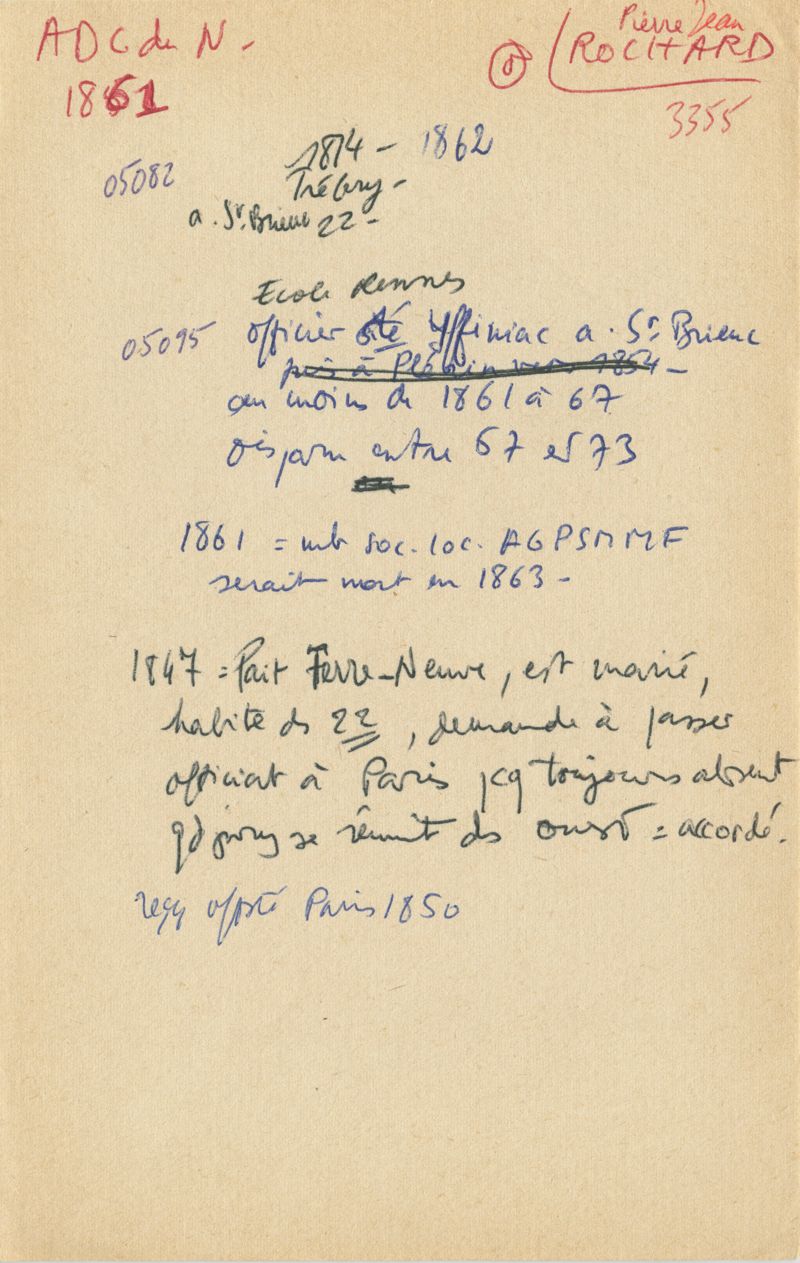 ADC du N -
1861
Pierre Jean
ROCHARD
3355
05082
1814 - 1862
Trégueux -
a. St. Brieuc 22 -
Ecole Rennes
05095
officier sté Yffiniac a. St. Brieuc
puis à Plérin vers 1854 -
au moins de 1861 à 67
disparu entre 67 et 73
1861 = mb soc. loc. AGPSMMF
serait mort en 1863 -
1847 = fait Terre-Neuve, est marié,
habite ds 22, demande à passer
officiat à Paris pcq toujours absent
qd jury se réunit ds ouest = accordé.
reçu offsté Paris 1850